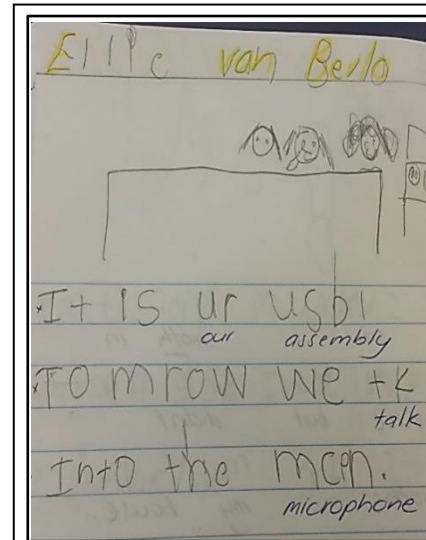 Ellie van Berlo
It is ur usbi
our assembly
Tomrow we tk
talk
Into the mcpn.
microphone